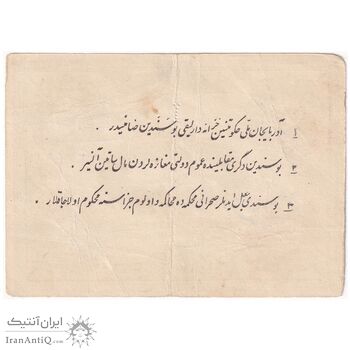 ۱ آذربایجان ملی حکومتینین خزانه دارلیقی بو سندین ضامنیدر .
۲ بو سندین دگری مقابلینده عموم دولتی مغازه لردن مال ساتین آلنیر .
۳ بو سندی جعل ایدنلر صحرائی محکمه ده محاکمه و اولوم جزاسنه محکوم اولاجاقلار .
ایران آنتیک
IranAntiQ.com